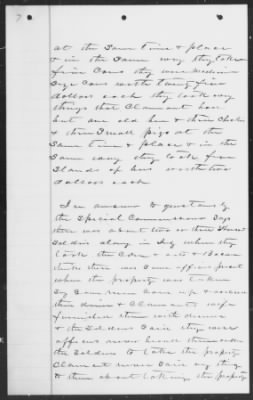 7
at the same time & place
& in the same way they took
five Cows they were medium
Size Cows worth twenty five
dollars each they took every
thing that Claimant had
but one old hen & three Chicks
& three small pigs at the
Same time & place & in the
Same way they took five
Stands of bees worth two
dollars each
In answer to questions by
the Special Commissioner Says
there was about two or three thousand
Soldiers along in July when they
took the Corn & oats & Bacon
thinks there was Some officers present
when the property was taken
Claimants wife
furnished them with dinner
& the Soldiers Said they were
officers never heard them order
the Soldiers to take the property
Claimant never Said any thing
to them about taking the property